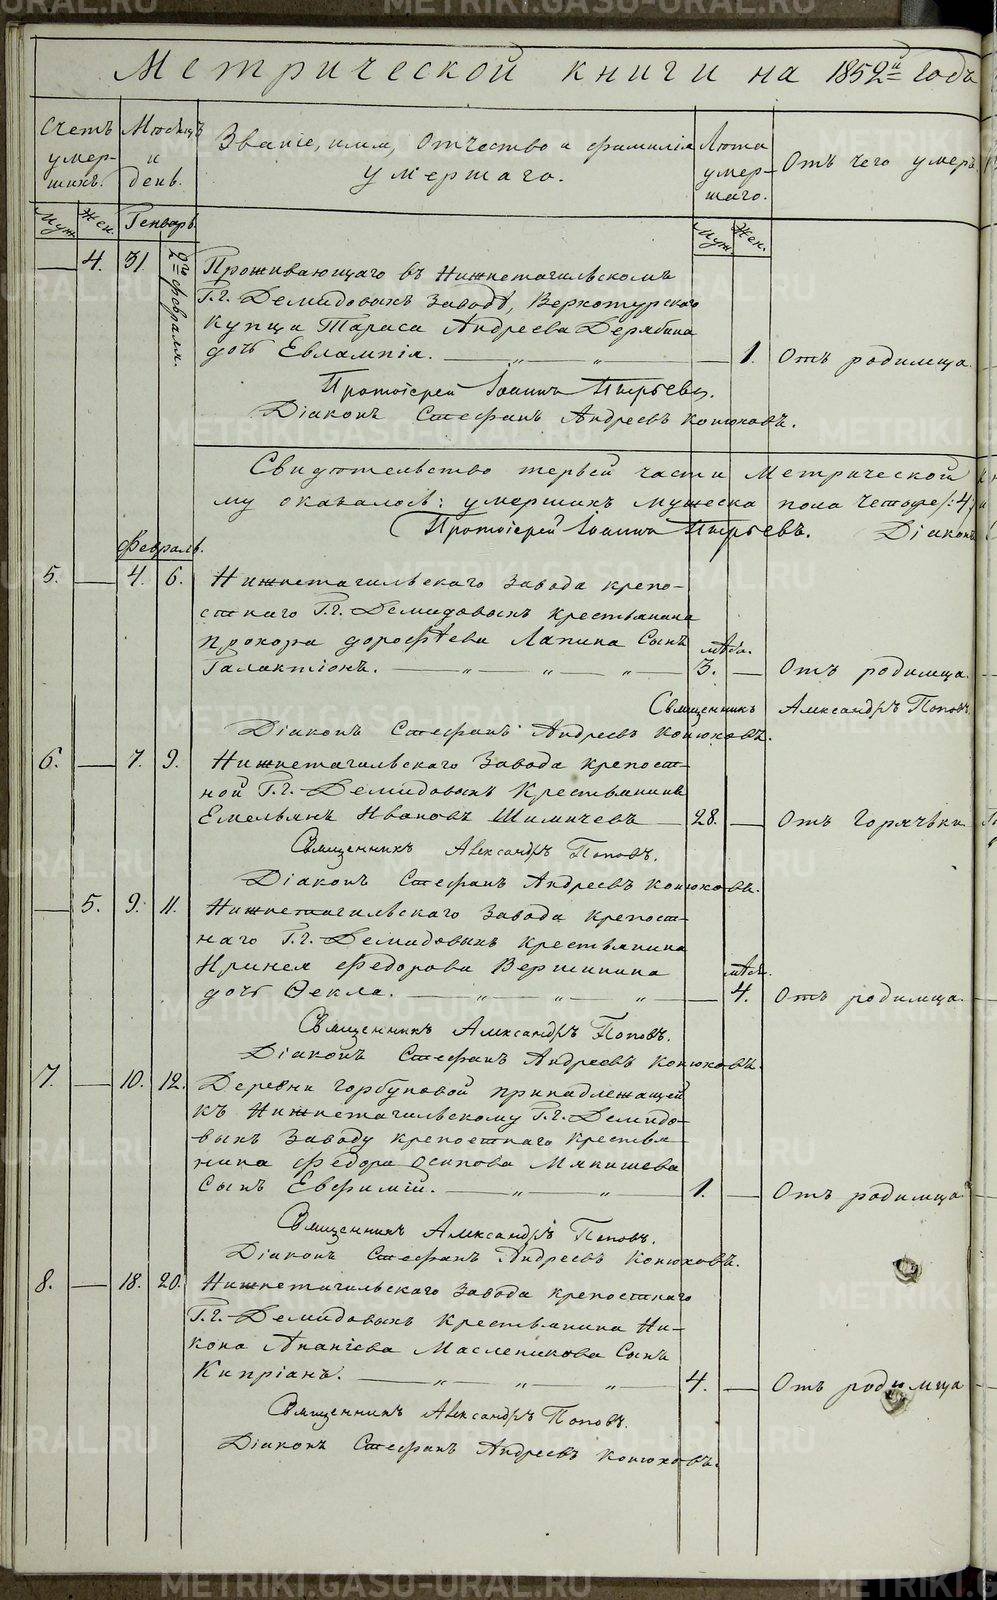 Метрической книги на 1852й годъ
Счетъ умершихъ.
Мѣсяцъ и день.
Званіе, имя, отчество и фамилія умершаго.
Лѣта умершаго.
Отъ чего умеръ
Муж. Жен.
Генварь.
Муж. Жен.
4. 31. 2го февраля.
Проживающаго въ Нижнетагильскомъ
Г.г. Демидовыхъ Заводѣ, Верхотурскаго
купца Тараса Андреева Дерябина
дочь Евлампія. 1. Отъ родимца.
Протоіерей Іоаннъ Пырьевъ.
Діаконъ Стефанъ Андреевъ Конюховъ.
Свидѣтельство третьей части Метрической
му оказалось: умершихъ мужеска пола четыре /:4:/
Протоіерей Іоаннъ Пырьевъ. Діаконъ
Февраль.
5. 4. 6. Нижнетагильскаго Завода крепо-
стнаго Г.г. Демидовыхъ крестьянина
Прокора Дорофѣева Лапина сынъ
мѣся.
Галактіонъ. 3. Отъ родимца.
Священникъ Александръ Поповъ.
Діаконъ Стефанъ Андреевъ Конюховъ.
6. 7. 9. Нижнетагильскаго Завода крепост-
ной Г.г. Демидовыхъ крестьянинъ
Емельянъ Ивановъ Шимичевъ 28. Отъ горячьки
Священникъ Александръ Поповъ.
Діаконъ Стефанъ Андреевъ Конюховъ.
5. 9. 11. Нижнетагильскаго Завода крепост-
наго Г.г. Демидовыхъ крестьянина
Иринея Федорова Вершинина
мѣся.
дочь Фекла. 4. Отъ родимца.
Священникъ Александръ Поповъ.
Діаконъ Стефанъ Андреевъ Конюховъ.
7. 10. 12. Деревни Горбуновой принадлежащей
къ Нижнетагильскому Г.г. Демидо-
выхъ Заводу крепостнаго крестья-
нина Федора Осипова Мякишева
Сынъ Евфимій. 1. Отъ родимца
Священникъ Александръ Поповъ.
Діаконъ Стефанъ Андреевъ Конюховъ.
8. 18. 20. Нижнетагильскаго Завода крепостнаго
Г.г. Демидовыхъ крестьянина Ни-
кона Ананіева Масленикова Сынъ
Кипріанъ. 4. Отъ родимца
Священникъ Александръ Поповъ.
Діаконъ Стефанъ Андреевъ Конюховъ.